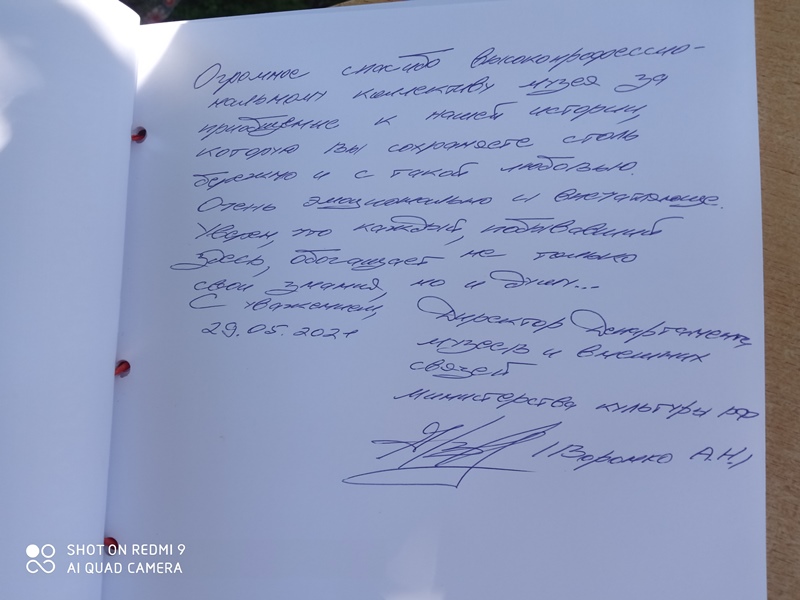 Огромное спасибо высокопрофессио-
нальному коллективу музея за
приобщение к нашей истории,
которую вы сохраняете столь
бережно и с такой любовью.
Очень эмоционально и впечатляюще.
Уверен, что каждый, побывавший
здесь, обогащает не только
свои знания, но и душу...
С уважением,
29.05.2021
Директор Департамента
музеев и внешних
связей
Министерства культуры РФ
(Воронко А.Н.)
SHOT ON REDMI 9
AI QUAD CAMERA